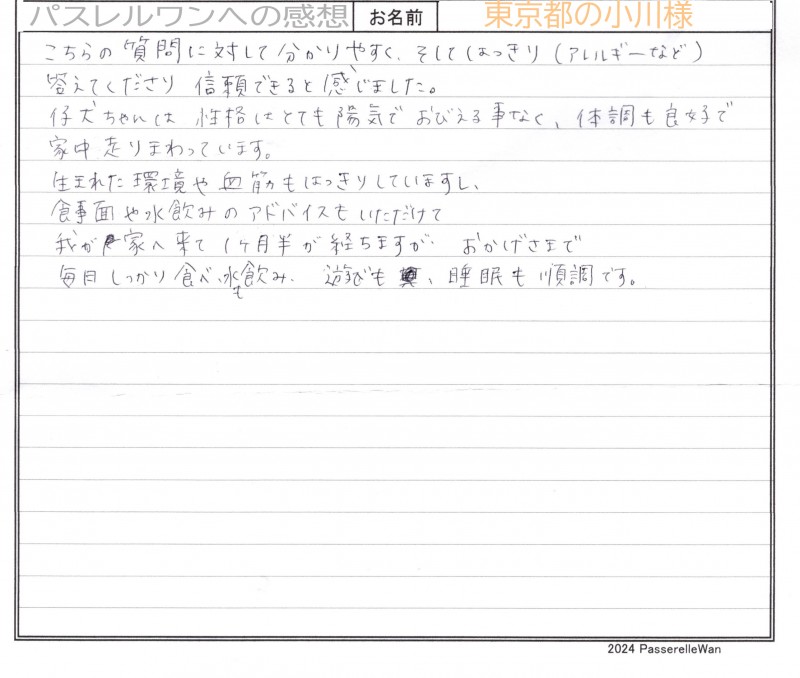 パスレルワンへの感想 お名前 東京都の小川様
こちらの質問に対して分かりやすく、そしてはっきり(アレルギーなど)
答えてくださり 信頼できると感じました。
仔犬ちゃんは 性格はとても陽気で おびえる事なく、体調も良好で
家中走りまわっています。
生まれた環境や血筋もはっきりしていますし、
食事面や水飲みのアドバイスもいただけて
我が家へ来て1ヶ月半が経ちますが おかげさまで
毎日しっかり食べ、水も飲み、遊びも、睡眠も順調です。
2024 PasserelleWan